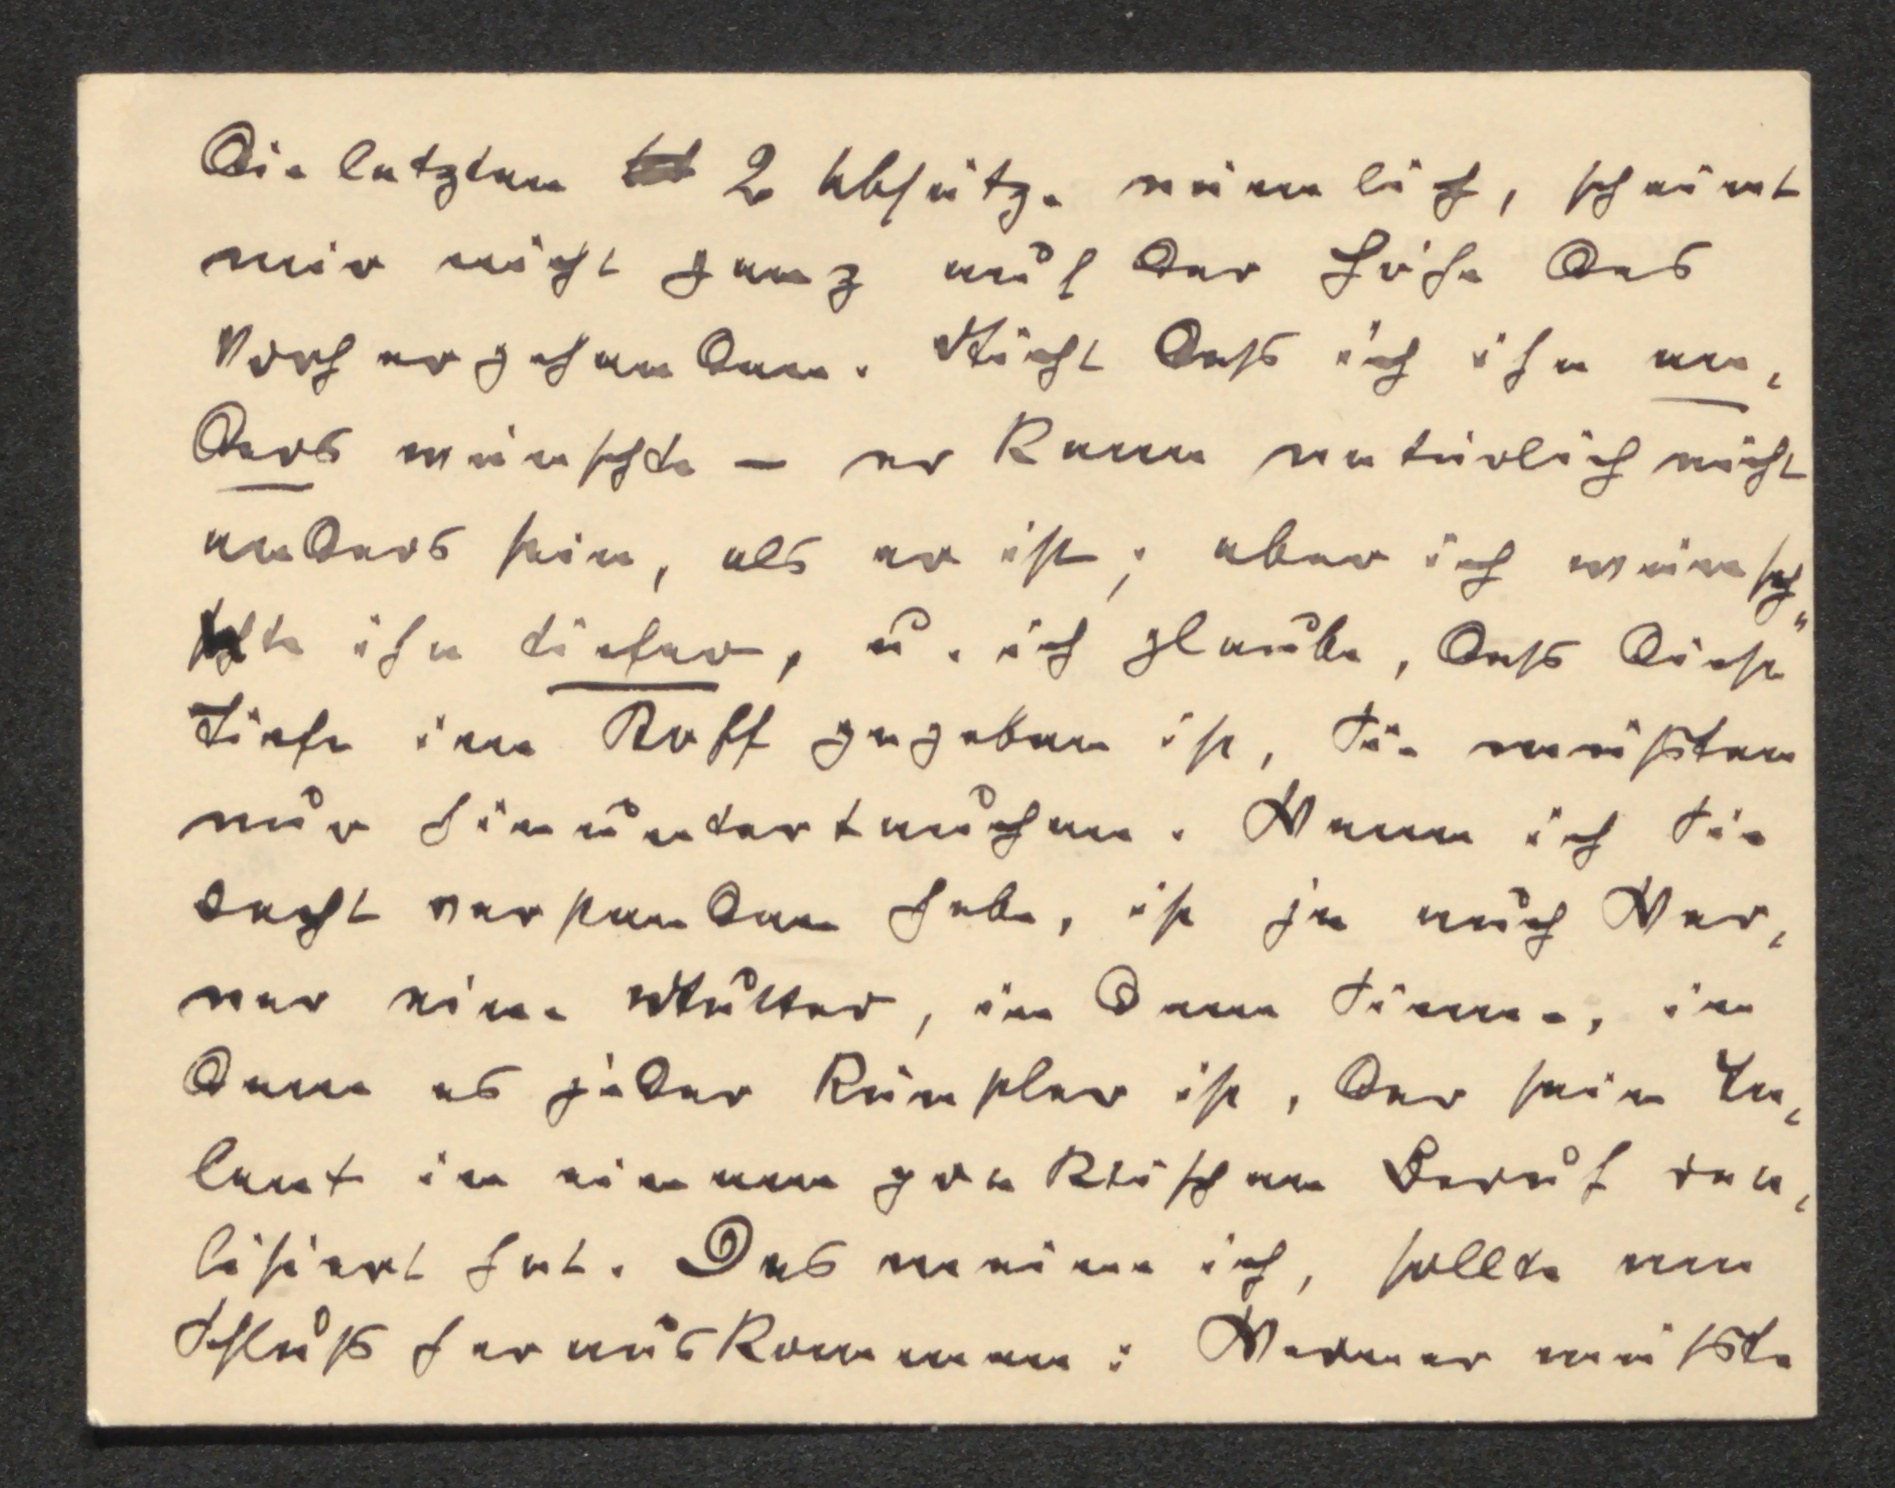 Die letzten 2 Absätze nämlich, scheint
mir nicht ganz auf der Höhe des
Vorhergehenden. Nicht dass ich ihn an-
ders wünschte – er kann natürlich nicht
anders sein, als er ist; aber ich wünsch-
te ihn tiefer, u. ich glaube, dass diese
Tiefe im Stoff gegeben ist, Sie müssten
nur hinuntertauchen. Wenn ich Sie
recht verstanden habe, ist ja auch Wer-
ner eine Mutter, in dem Sinne, in
dem es jeder Künstler ist, der sein Ta-
lent in einem praktischen Beruf rea-
lisiert hat. Das meine ich, sollte am
Schluss herauskommen: Werner müsste